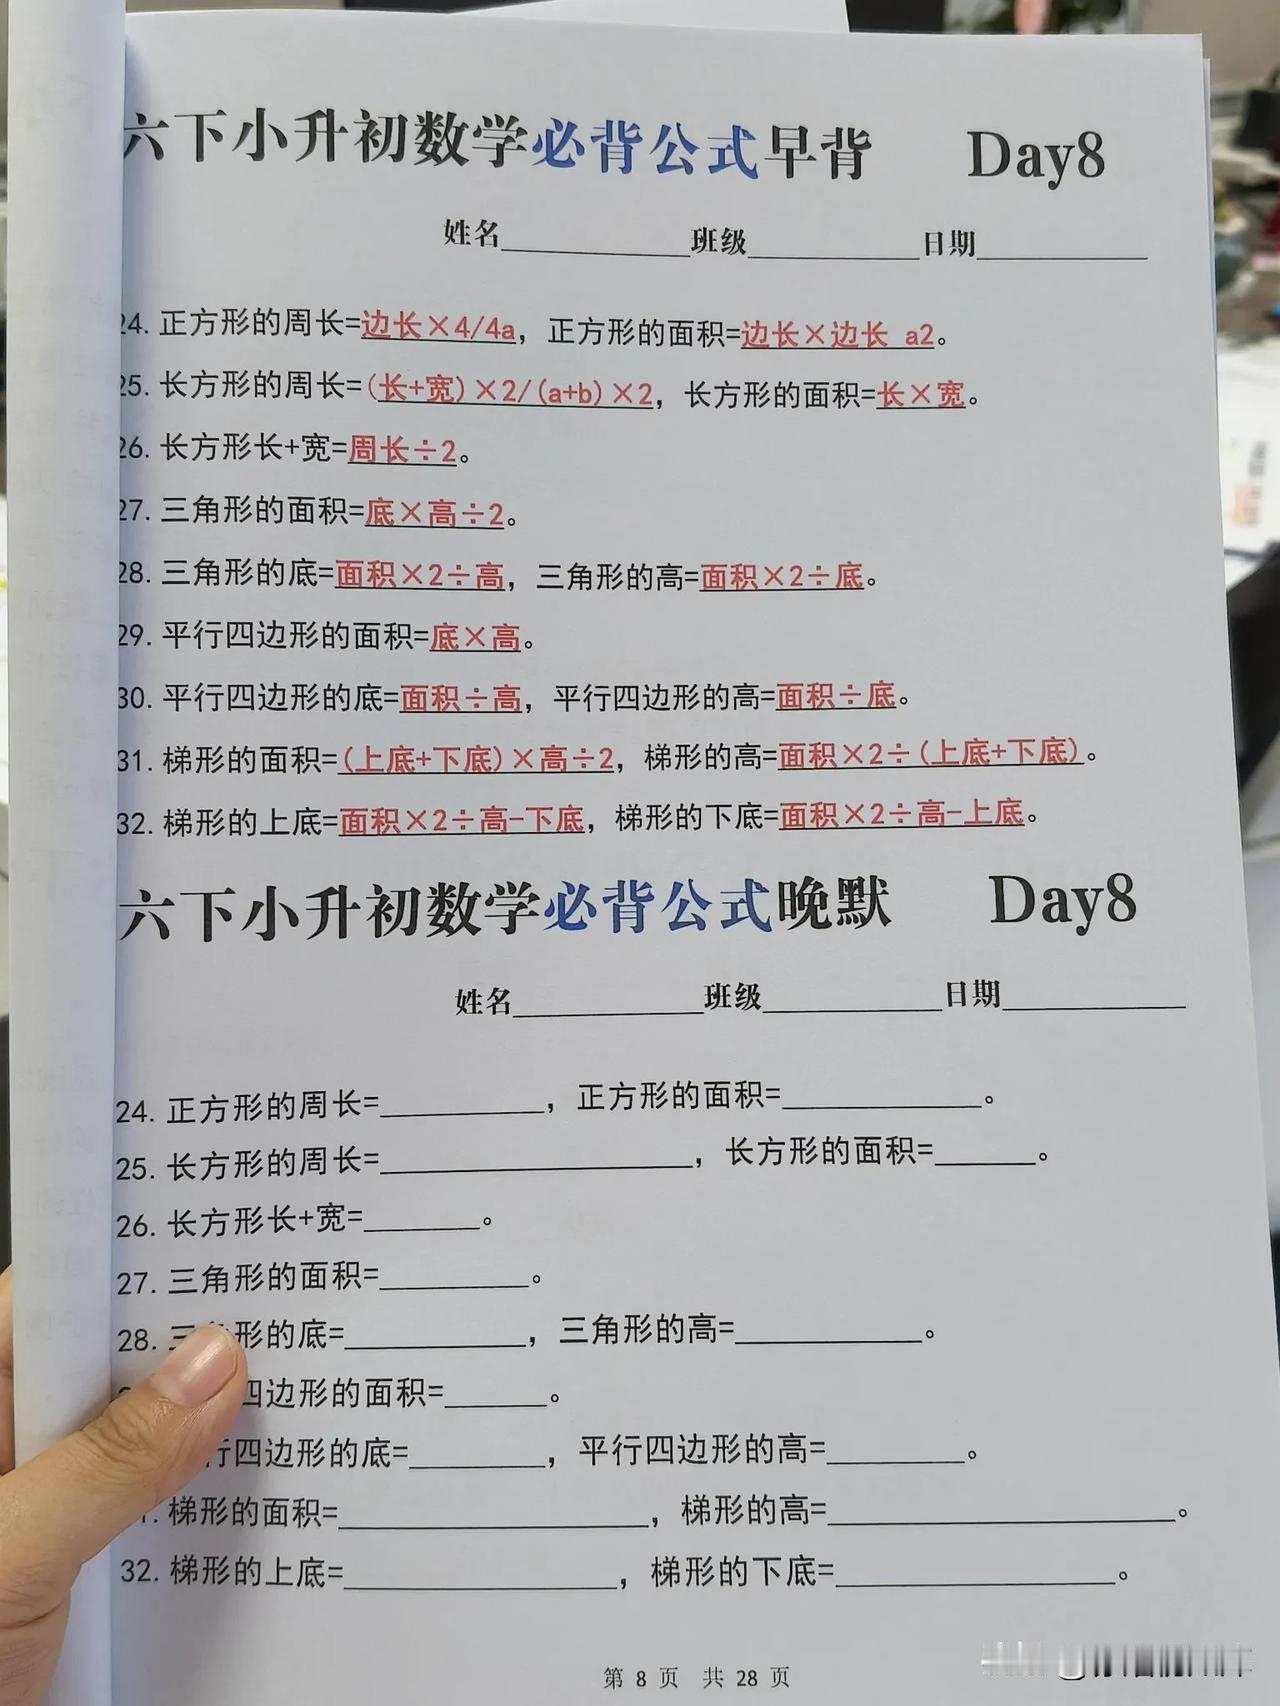 六下小升初数学必背公式早背 Day8
姓名__________班级__________日期__________
24. 正方形的周长=边长×4/4a，正方形的面积=边长×边长 a2。
25. 长方形的周长=(长+宽)×2/(a+b)×2，长方形的面积=长×宽。
26. 长方形长+宽=周长÷2。
27. 三角形的面积=底×高÷2。
28. 三角形的底=面积×2÷高，三角形的高=面积×2÷底。
29. 平行四边形的面积=底×高。
30. 平行四边形的底=面积÷高，平行四边形的高=面积÷底。
31. 梯形的面积=(上底+下底)×高÷2，梯形的高=面积×2÷(上底+下底)。
32. 梯形的上底=面积×2÷高-下底，梯形的下底=面积×2÷高-上底。
六下小升初数学必背公式晚默 Day8
姓名__________班级__________日期__________
24. 正方形的周长=__________，正方形的面积=__________。
25. 长方形的周长=__________，长方形的面积=______。
26. 长方形长+宽=_______。
27. 三角形的面积=_________。
28. 三角形的底=__________，三角形的高=__________。
四边形的面积=______。
行四边形的底=________，平行四边形的高=________。
梯形的面积=__________，梯形的高=__________。
32. 梯形的上底=__________，梯形的下底=__________。
第 8 页 共 28 页